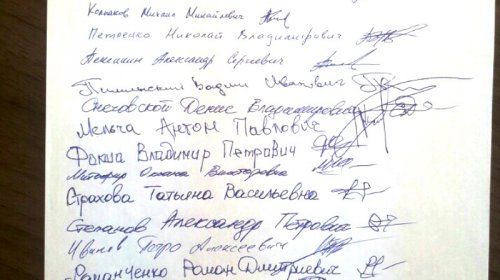 Колпаков Михаил Михайлович
Петренко Николай Владимирович
Александр Сергеевич
Вадим Иванович
Снеговской Денис Владимирович
Мельча Антон Павлович
Фокша Владимир Петрович
Оксана Викторовна
Страхова Татьяна Васильевна
Степанов Александр Петрович
Иванов Алексеевич
Романченко Роман Дмитриевич